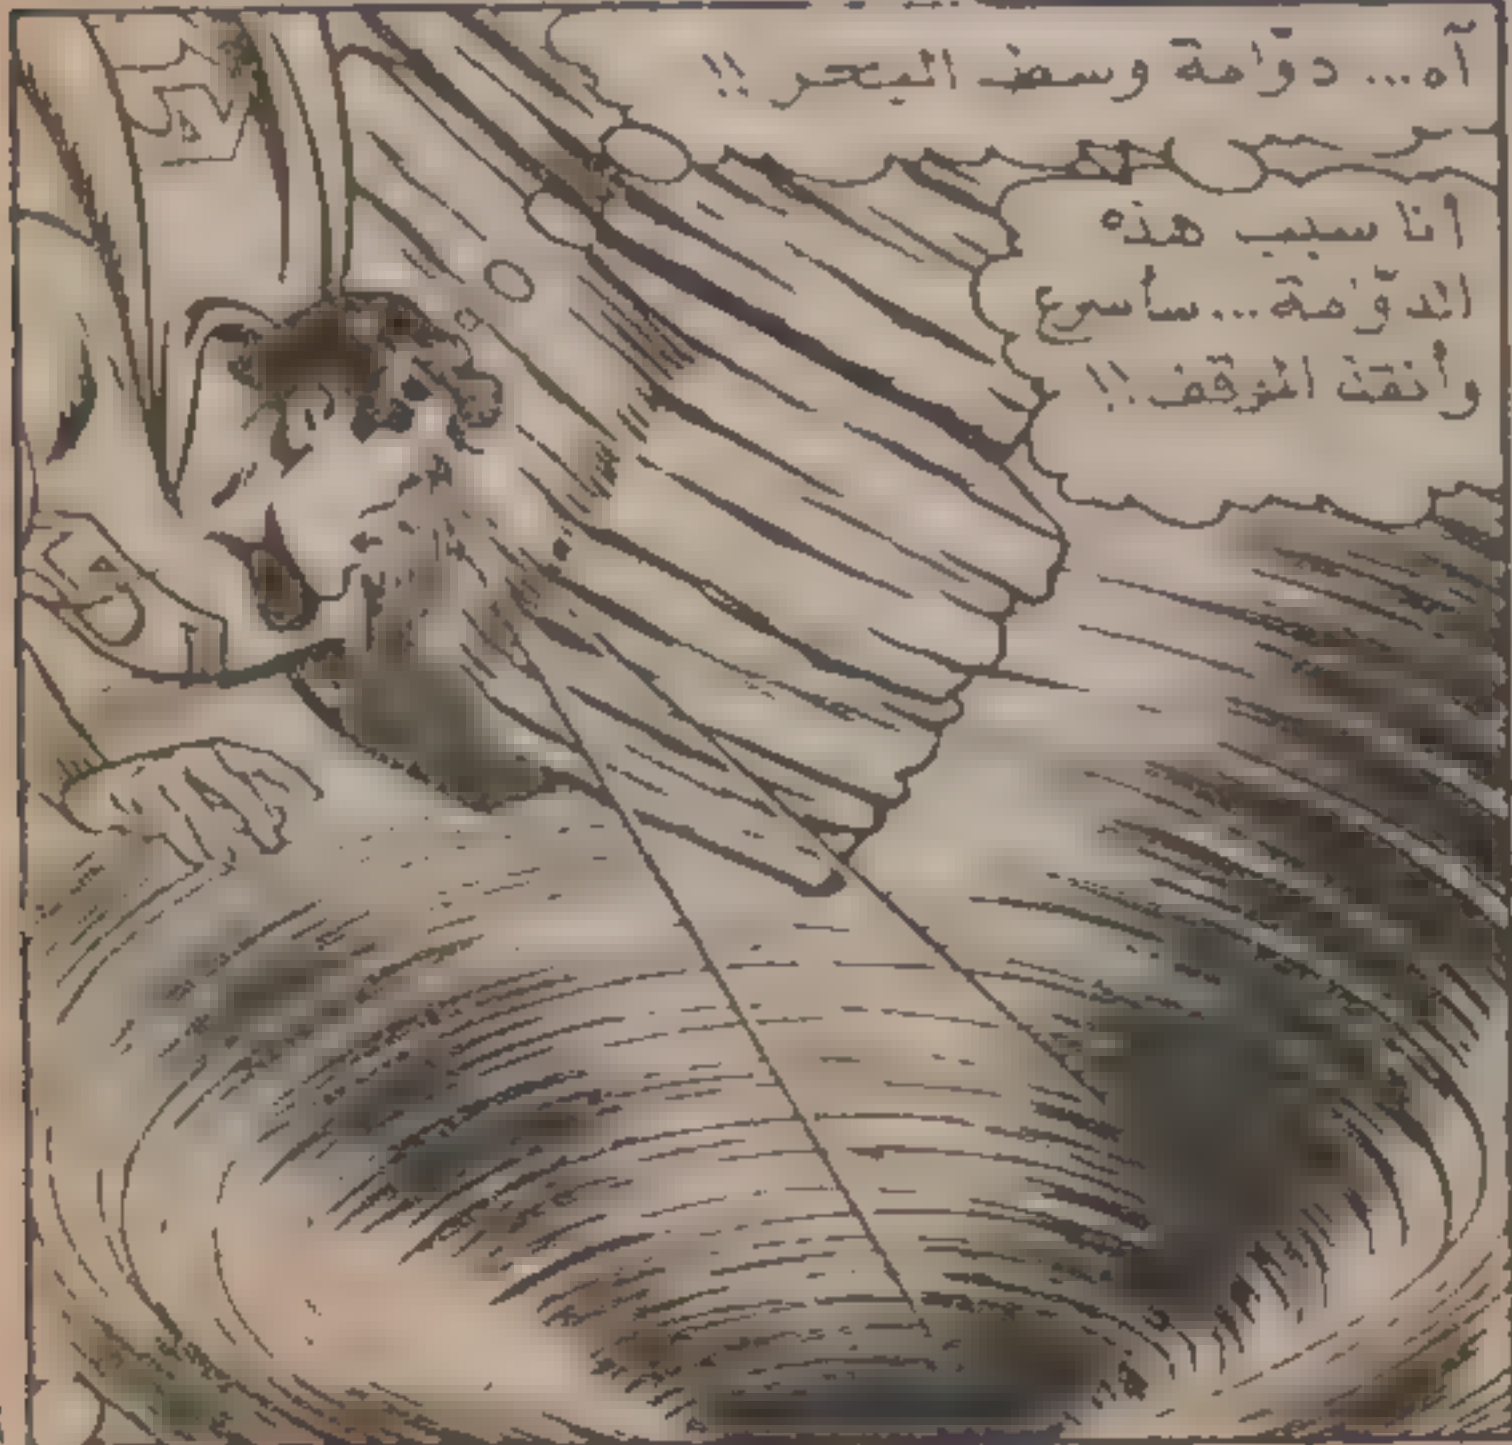 آه... دوّامة وسط البحر !!
أنا سبب هذه
الدوّامة... سأسرع
وأنقذ الموقف !!